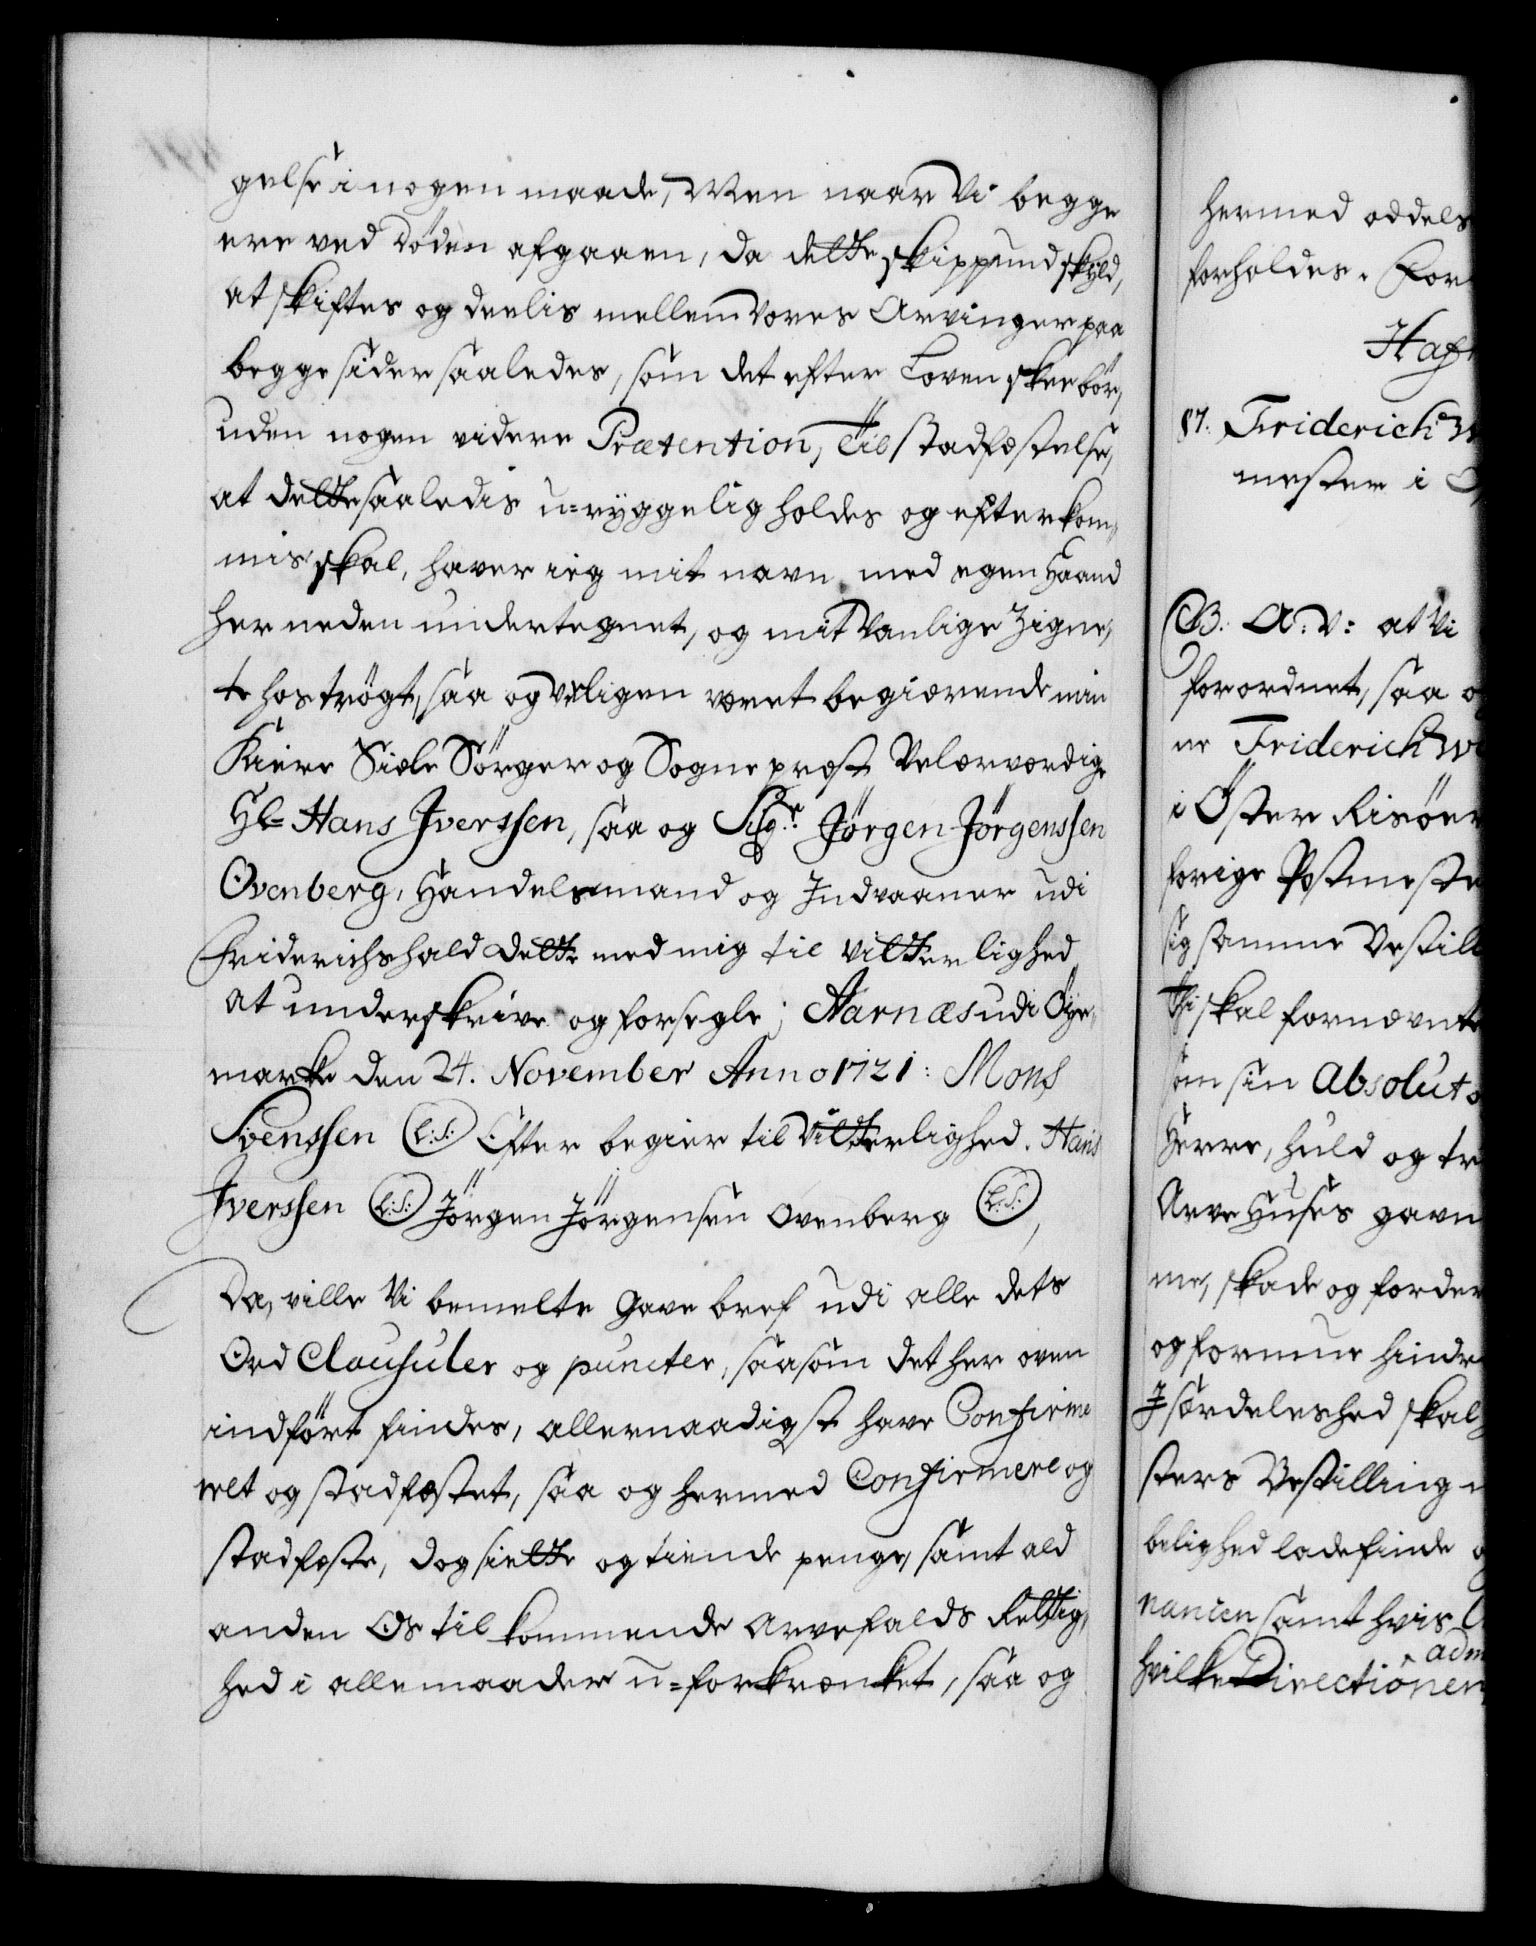 gelse i nogen maade, Men naar Vi begge
ere ved Døden afgaaen, da dette skippund skyld,
at skiftes og deelis mellem Vores Arvinger paa
begge sider saaledes, som det efter Loven skee bør,
uden nogen videre Prætention, Til stadfæstelse,
at dette saaledis u-ryggelig holdes og efterkom,
mis skal, haver ieg mit navn med egen Haand
her neden undertegnet, og mit Vanlige Zigne,
te hostrøgt, saa og Venligen været begiærende min
Kiere Siæle Sørger og Sogne præst Velærværdige
Hr Hans Iverssen, saa og Sigr. Jørgen Jørgenssen
Ovenberg, Handelsmand og Indvaaner udi
Friderichshald dette med mig til Vitterlighed
at underskrive og forsegle; Aarnæs udi Øye,
marke den 24. November Anno 1721: Mons
Svenssen (L:S:) Efter begier til Vitterlighed. Hans
Iverssen (L:S:) Jørgen Jørgensen Ovenberg (L:S:),
Da, ville Vi bemelte Gave bref udi alle dets
Ord Clausuler og puncter, saasom det her oven
indført findes, allernaadigst have Confirme
ret og stadfæstet, saa og hermed Confirmere og
stadfæste, dog siette og tiende penge, samt ald
anden Os tilkommende Arvefalds Rettig,
hed i alle maader u-forkrænket, saa og
hermed oddels
forholdes. For
Haf
87. Friderich W
mester i
G. A. V: at Vi
forordnet, saa o
ne Friderich We
i Øster Risøer
forige Postmeste
sig samme Bestill
Thi skal fornævnte
som sin Absolut
Herre, huld og tr
Arve Huses gavn
me, skade og forder
og formue hindre
Isærdeleshed skal
sters Bestilling
belighed lade finde o
nancen samt hvis
adm
hvilke Directionen